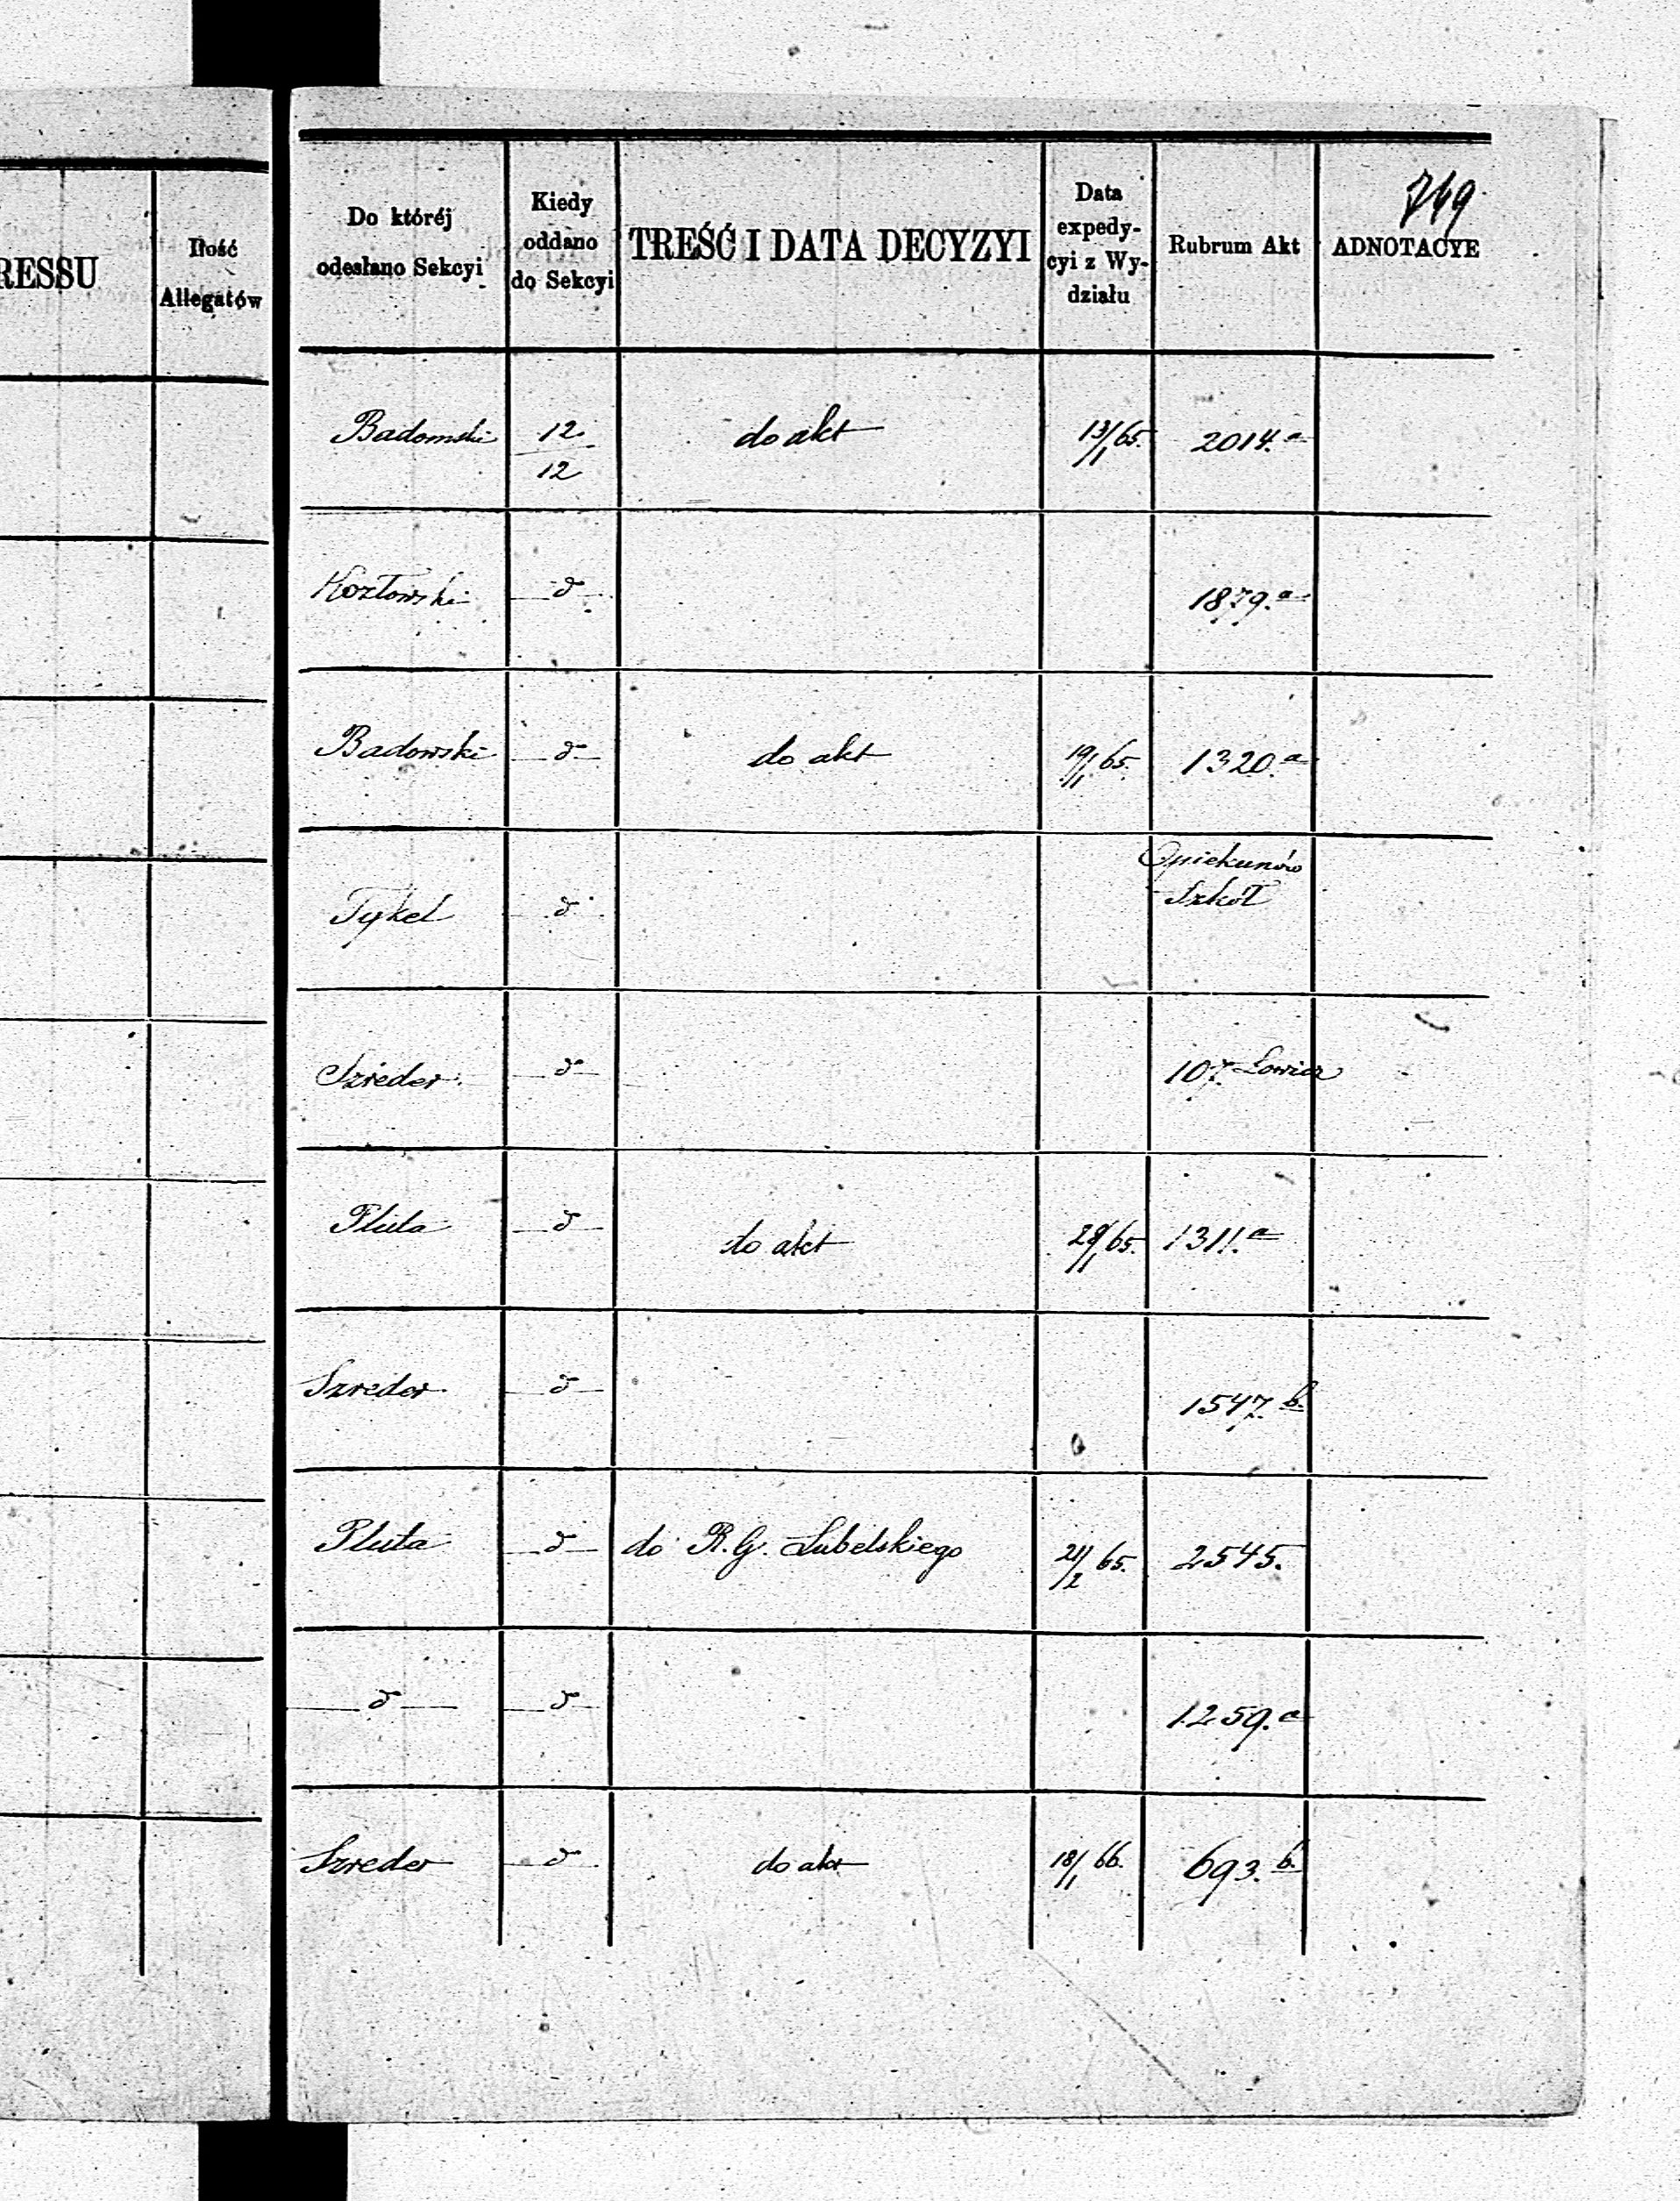 749
RESSU
Ilość
Allegatów
Do któréj
odesłano Sekcyi
Kiedy
oddano
do Sekcyi
TREŚĆ I DATA DECYZYI
Data
expedy-
cyi z Wy-
działu
Rubrum Akt
ADNOTACYE
Badomski 12/12 do akt 13/1 65. 2014.a
Kozłowski d° 1879.a
Badowski d° do akt 19/1 65. 1320.a
Opiekunów
Szkół
Tykel d°
Szreder d° 107. Łowicz
Pluta d° do akt 28/1 65. 1311.a
Szreder d° 1547.b.
Pluta d° do R.G. Lubelskiego 21/2 65. 2545.
d° d° 1259.a
Szreder d° do akt 18/1 66. 693.b.